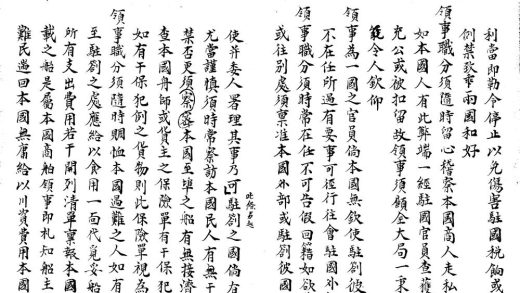 利當即勒令停止以免傷害駐國稅餉或
例禁致乖兩國和好
領事職分須隨時留心稽察本國商人走私
如本國人有此弊端一經駐國官員查獲
充公或被扣留故領事須顧全大局一秉
能令人欽仰
領事為一國之官員倘本國無欽使駐劄彼
不在任所遇有要事可徑行往會駐國外
領事職分須時常在任不可告假回籍如欲
或往別處須禀准本國外部或駐劄彼國
使并委人署理其事乃可駐劄之國倘有
此條另起
尤當謹慎須時常察訪本國民人有無干
禁否更須察審本國至埠之船有無接濟
查本國舟師或貨主之保險單有干保犯
如有干保犯例之貨物則此保險單視為
領事職分須隨時賙恤本國遇難之人如有
至駐劄之處應給以食用一面代覓妥船
所有支出費用若干開列清單禀報本國
載之船是屬本國商船領事即札知船主
難民過回本國無庸給以川資費用本國